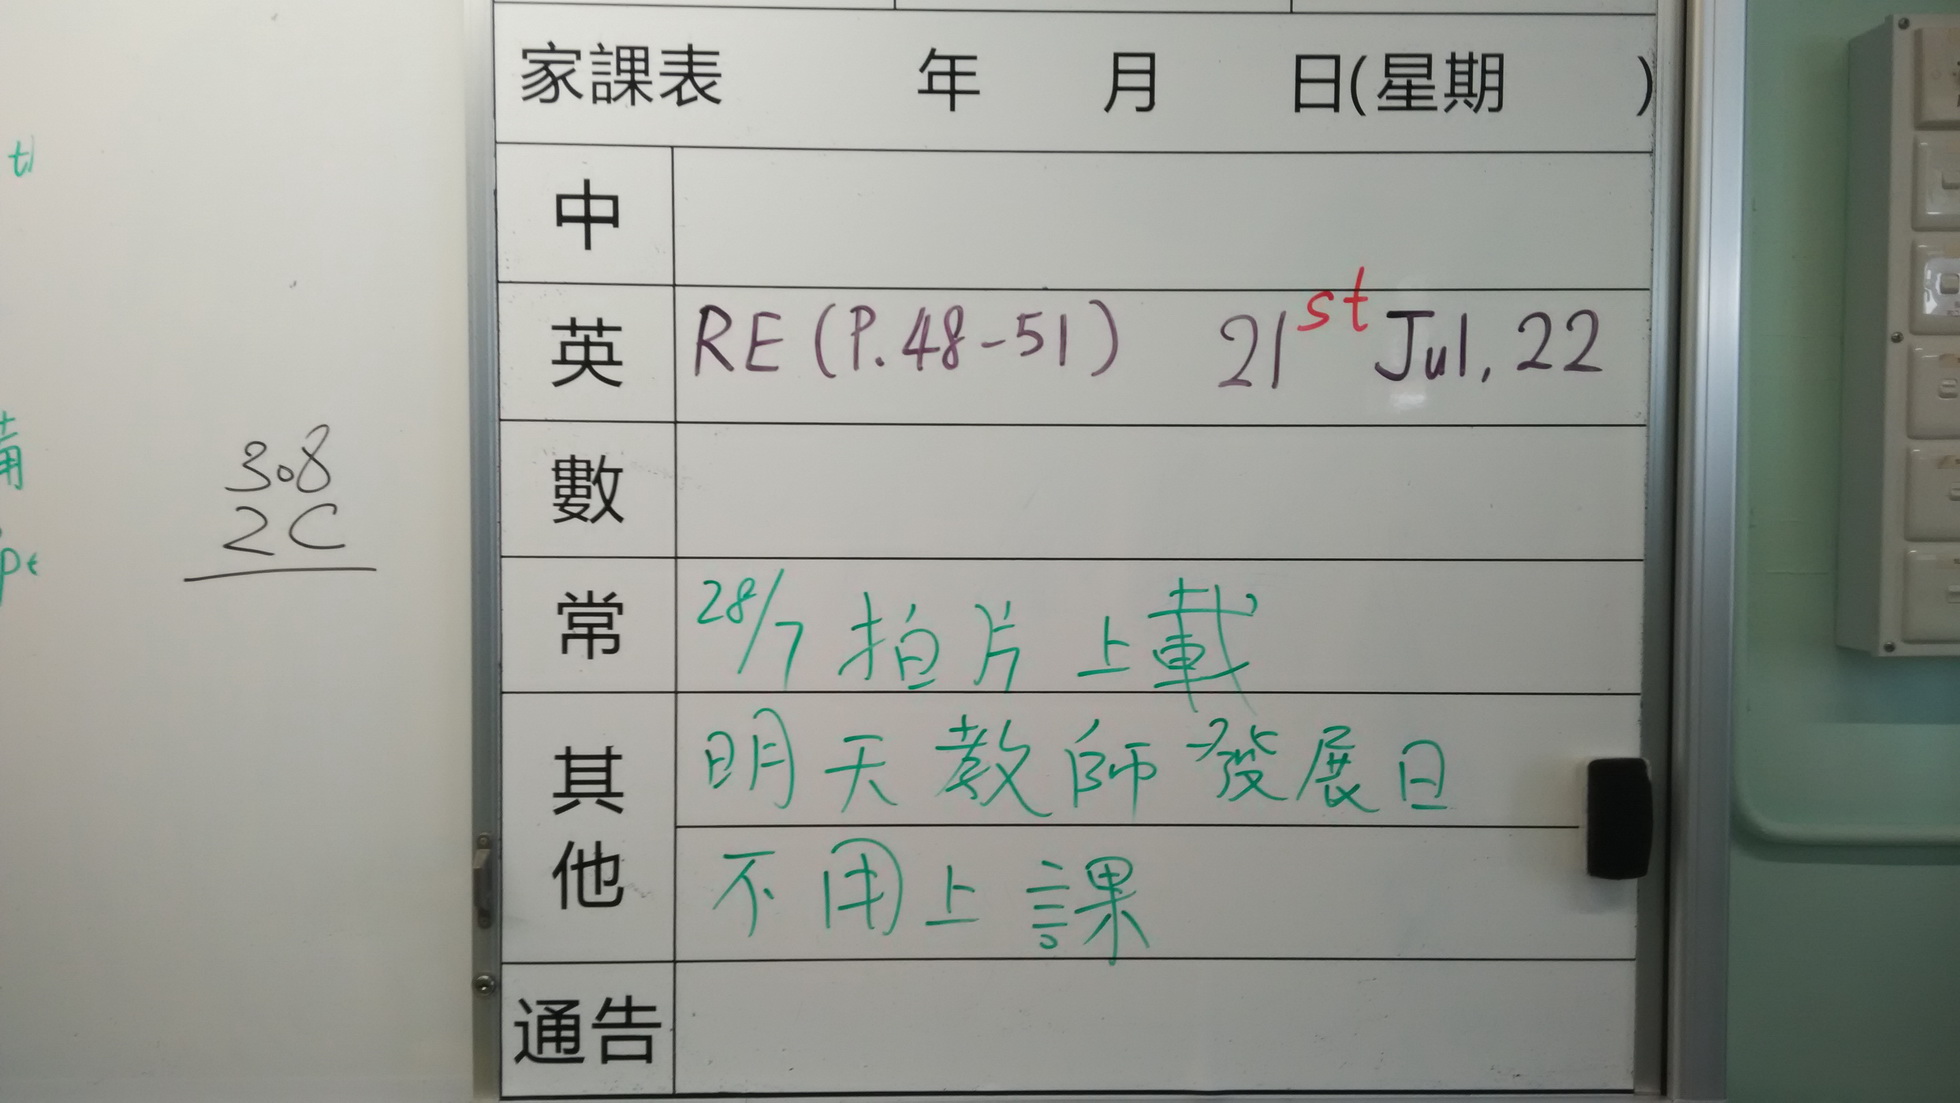 家課表 年 月 日(星期 )
中
英 RE (P.48-51) 21st Jul, 22
數
常 28/7 拍片上載
其他 明天教師發展日
不用上課
通告
308
2C